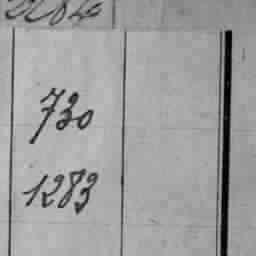 730
1283